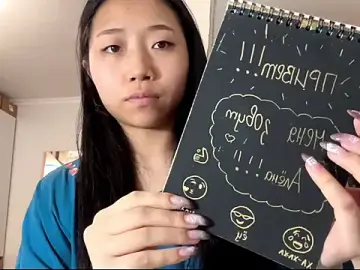 ПРИВЕТ!!!
Меня
зовут
Алёна
!!!!
ХА-ХАХА